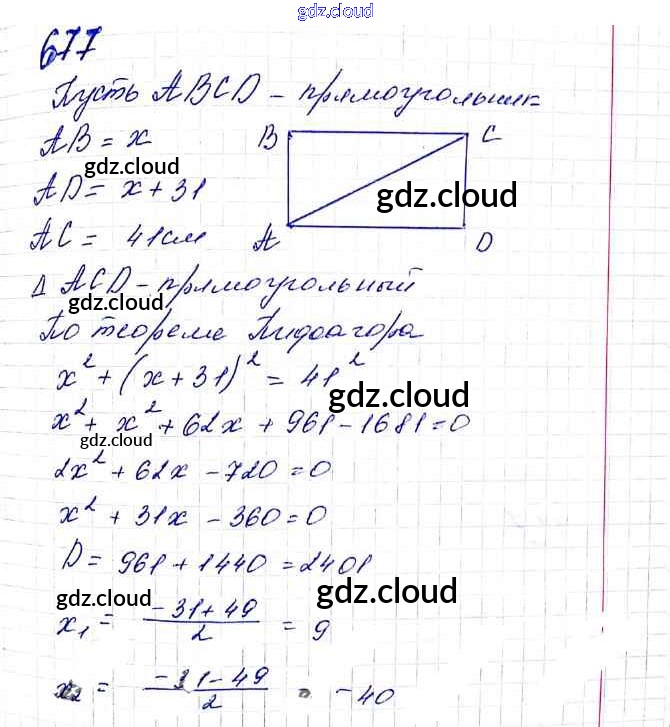 gdz.cloud
677
Пусть ABCD - прямоугольник
AB = x
B C
gdz.cloud
AD = x + 31
gdz.cloud
AC = 41см
A D
Δ ACD - прямоугольный
gdz.cloud
По теореме Пифагора
x² + (x + 31)² = 41²
gdz.cloud
x² + x² + 62x + 961 - 1681 = 0
gdz.cloud
2x² + 62x - 720 = 0
x² + 31x - 360 = 0
D = 961 + 1440 = 2401
gdz.cloud
gdz.cloud
x₁ = (-31 + 49)/2 = 9
x₂ = (-31 - 49)/2 = -40